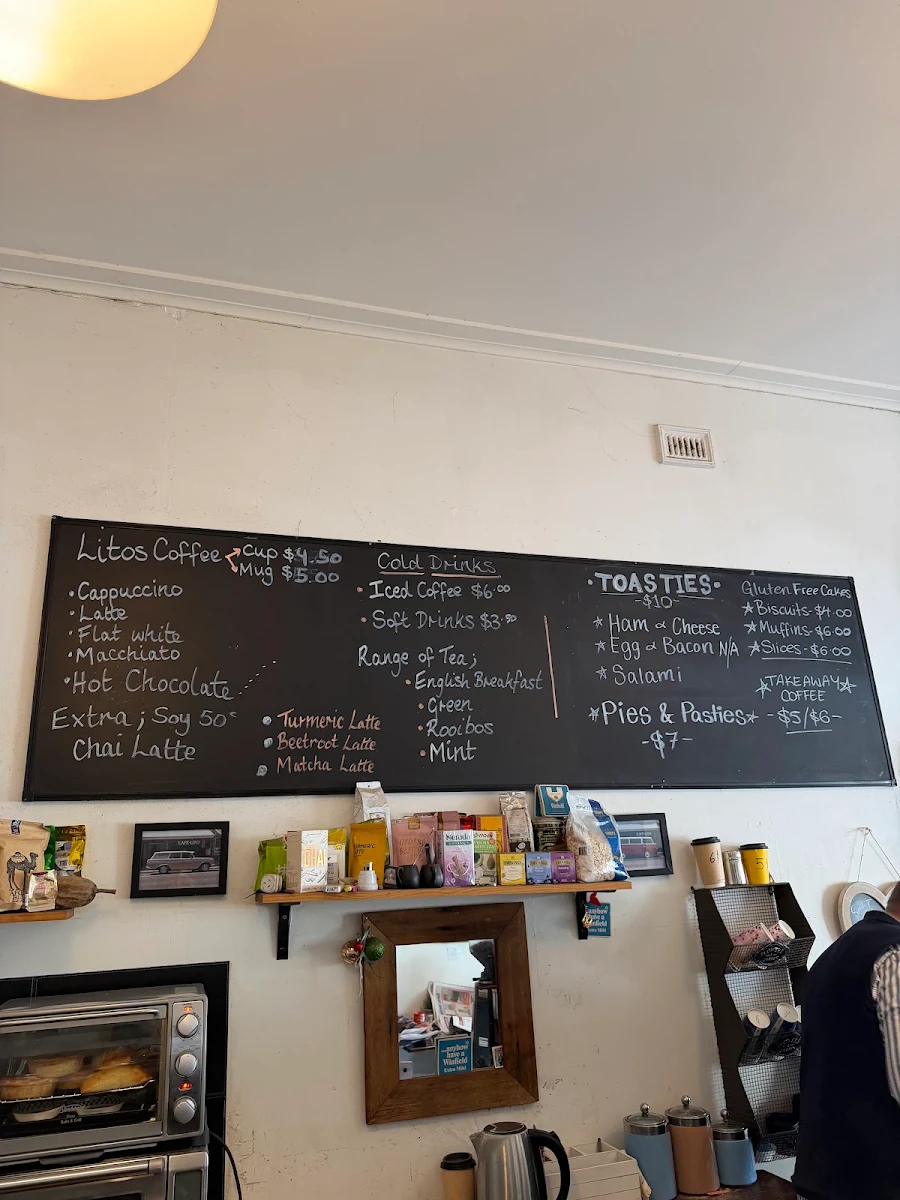 Litos Coffee
Cup $4.50
Mug $5.00
• Cappuccino
• Latte
• Flat white
• Macchiato
• Hot Chocolate
Extra ; Soy 50c
Chai Latte
• Turmeric Latte
• Beetroot Latte
• Matcha Latte
Cold Drinks
• Iced Coffee $6.00
• Soft Drinks $3.50
Range of Tea ;
• English Breakfast
• Green
• Rooibos
• Mint
• TOASTIES •
-$10-
* Ham & Cheese
* Egg & Bacon N/A
* Salami
*Pies & Pasties*
-$7-
Gluten Free Cakes
*Biscuits-$4.00
*Muffins-$6.00
*Slices-$6.00
*TAKEAWAY*
COFFEE
-$5/$6-
CHAI
6
5
anyhow
have a
Winfield
anyhow
have a
Winfield